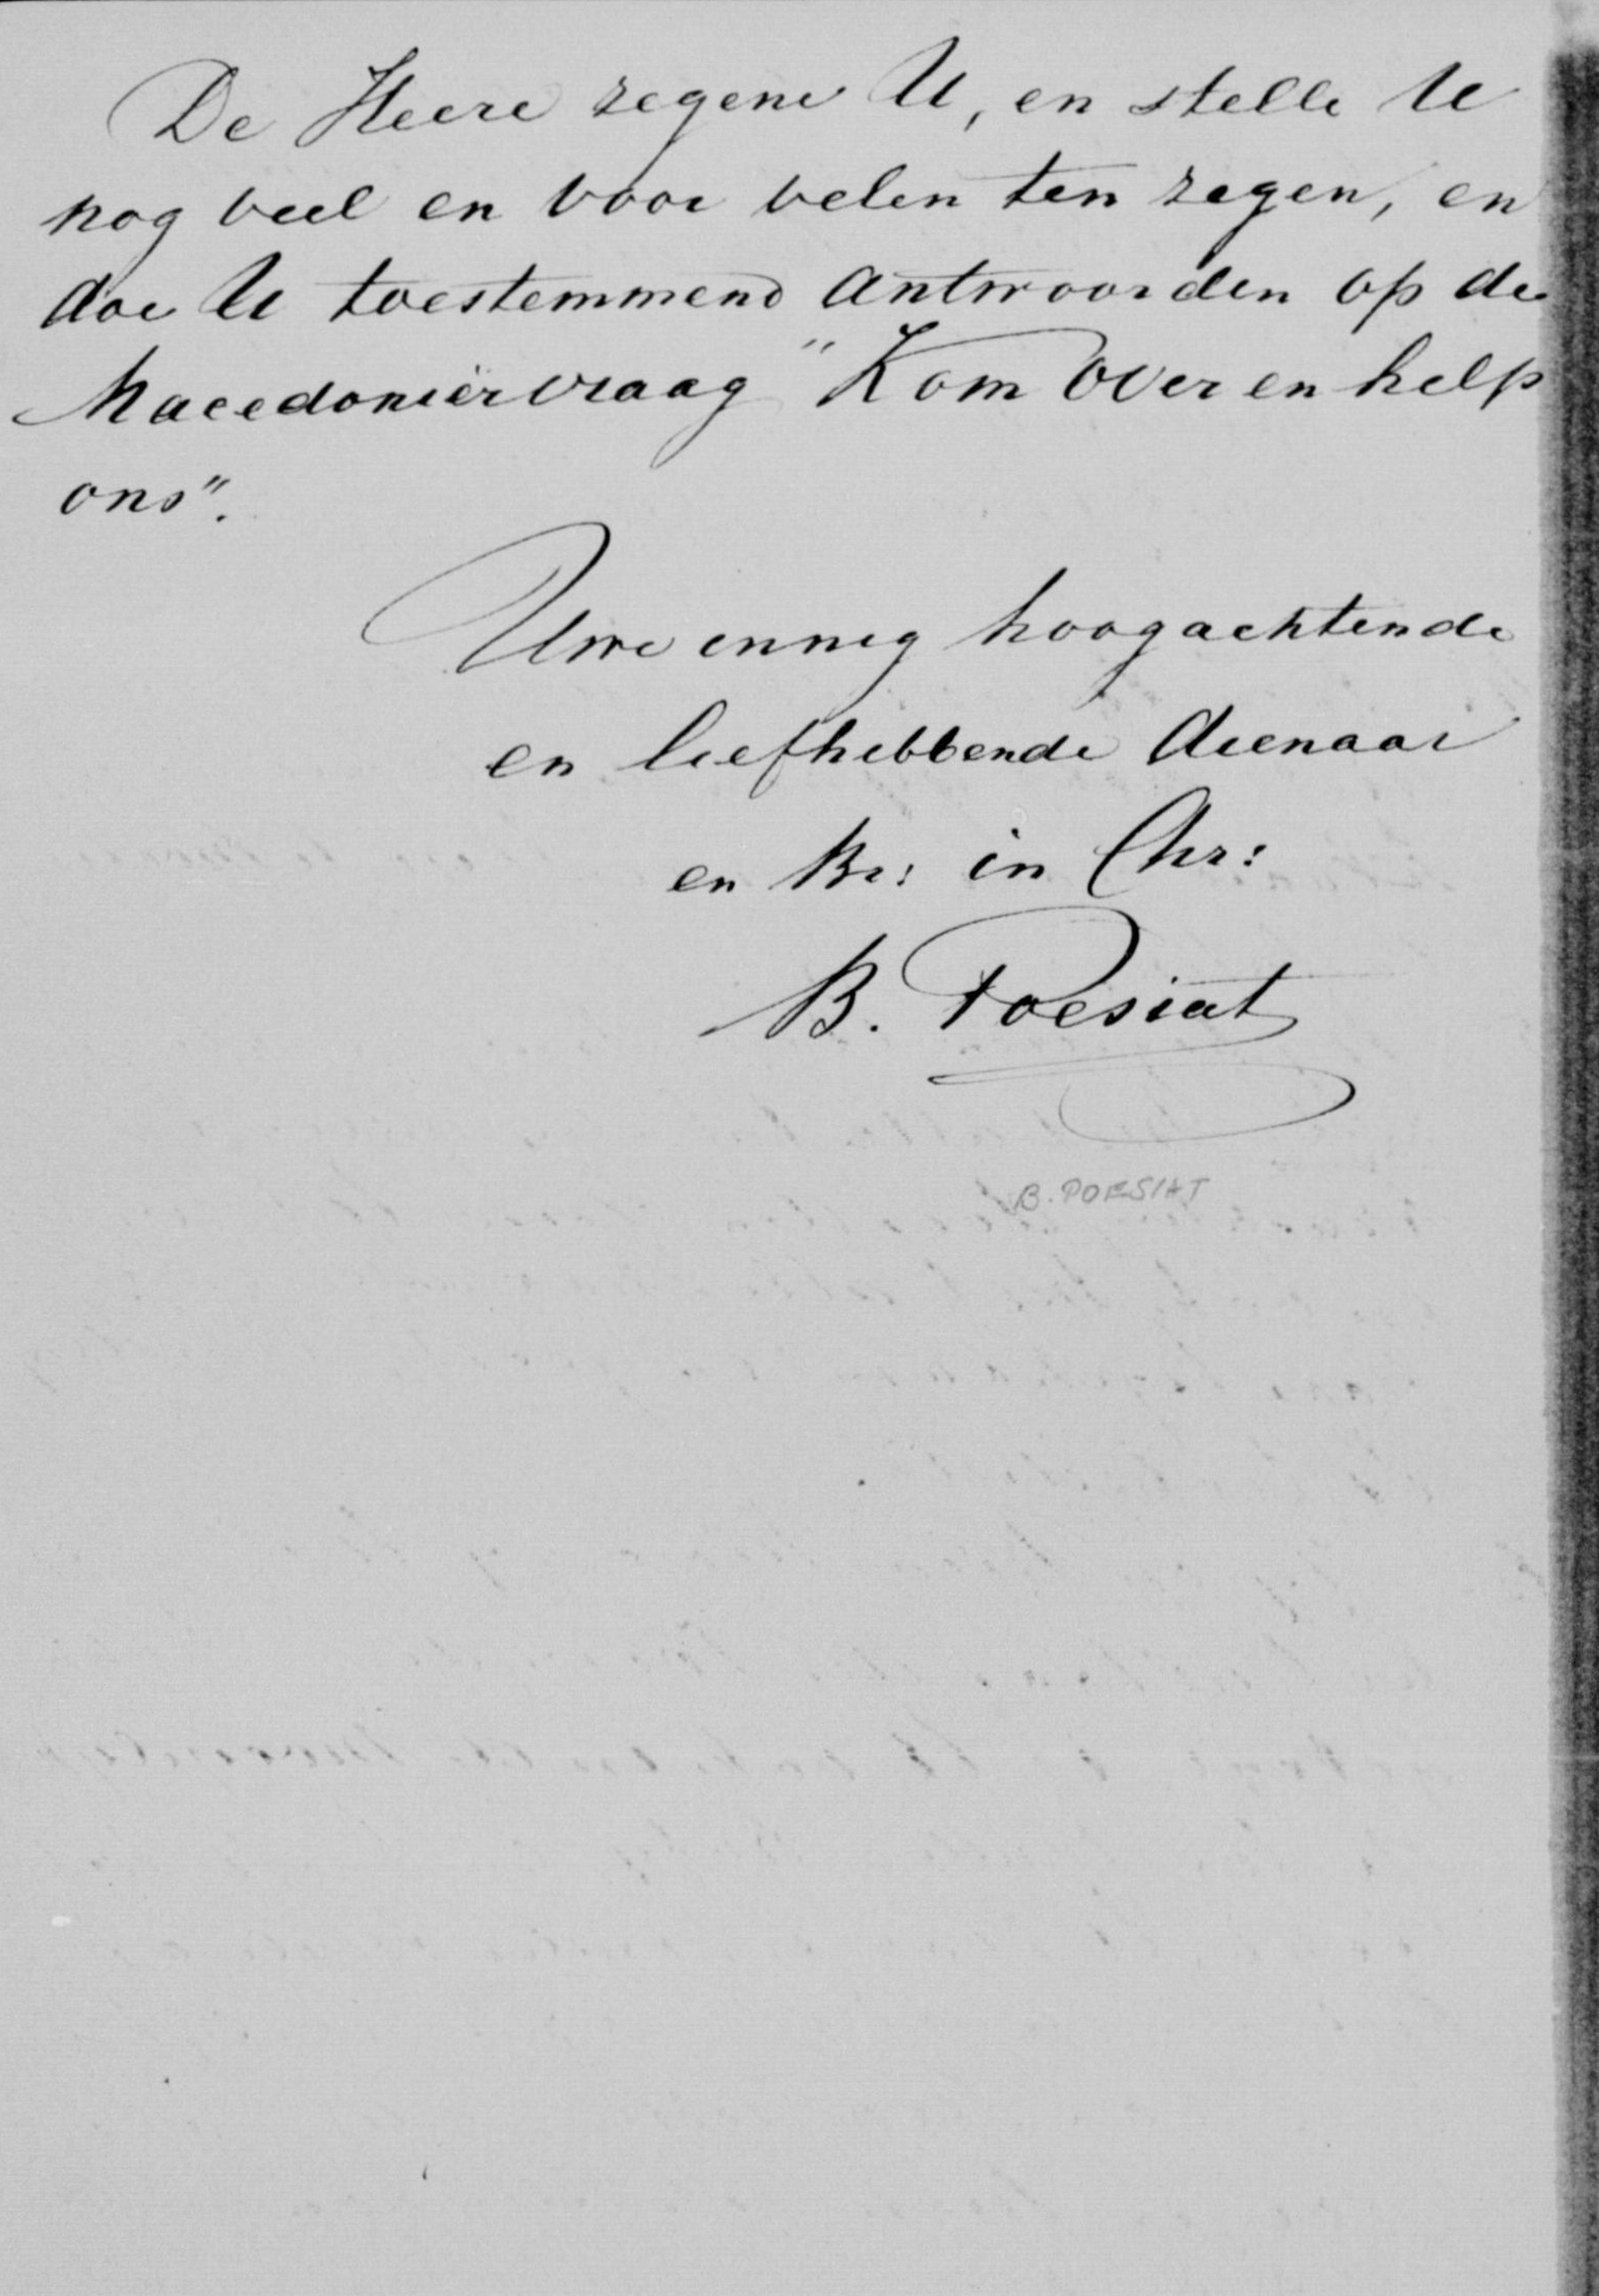 De Heere zegene U, en stelle U
nog veel en voor velen ten zegen, en
doe U toestemmend antwoorden op de
Macedoniërvraag "Kom over en help
ons".
Uwe innig hoogachtende
en liefhebbende dienaar
en Br: in Chr:
B. Poesiat
B. POESIAT